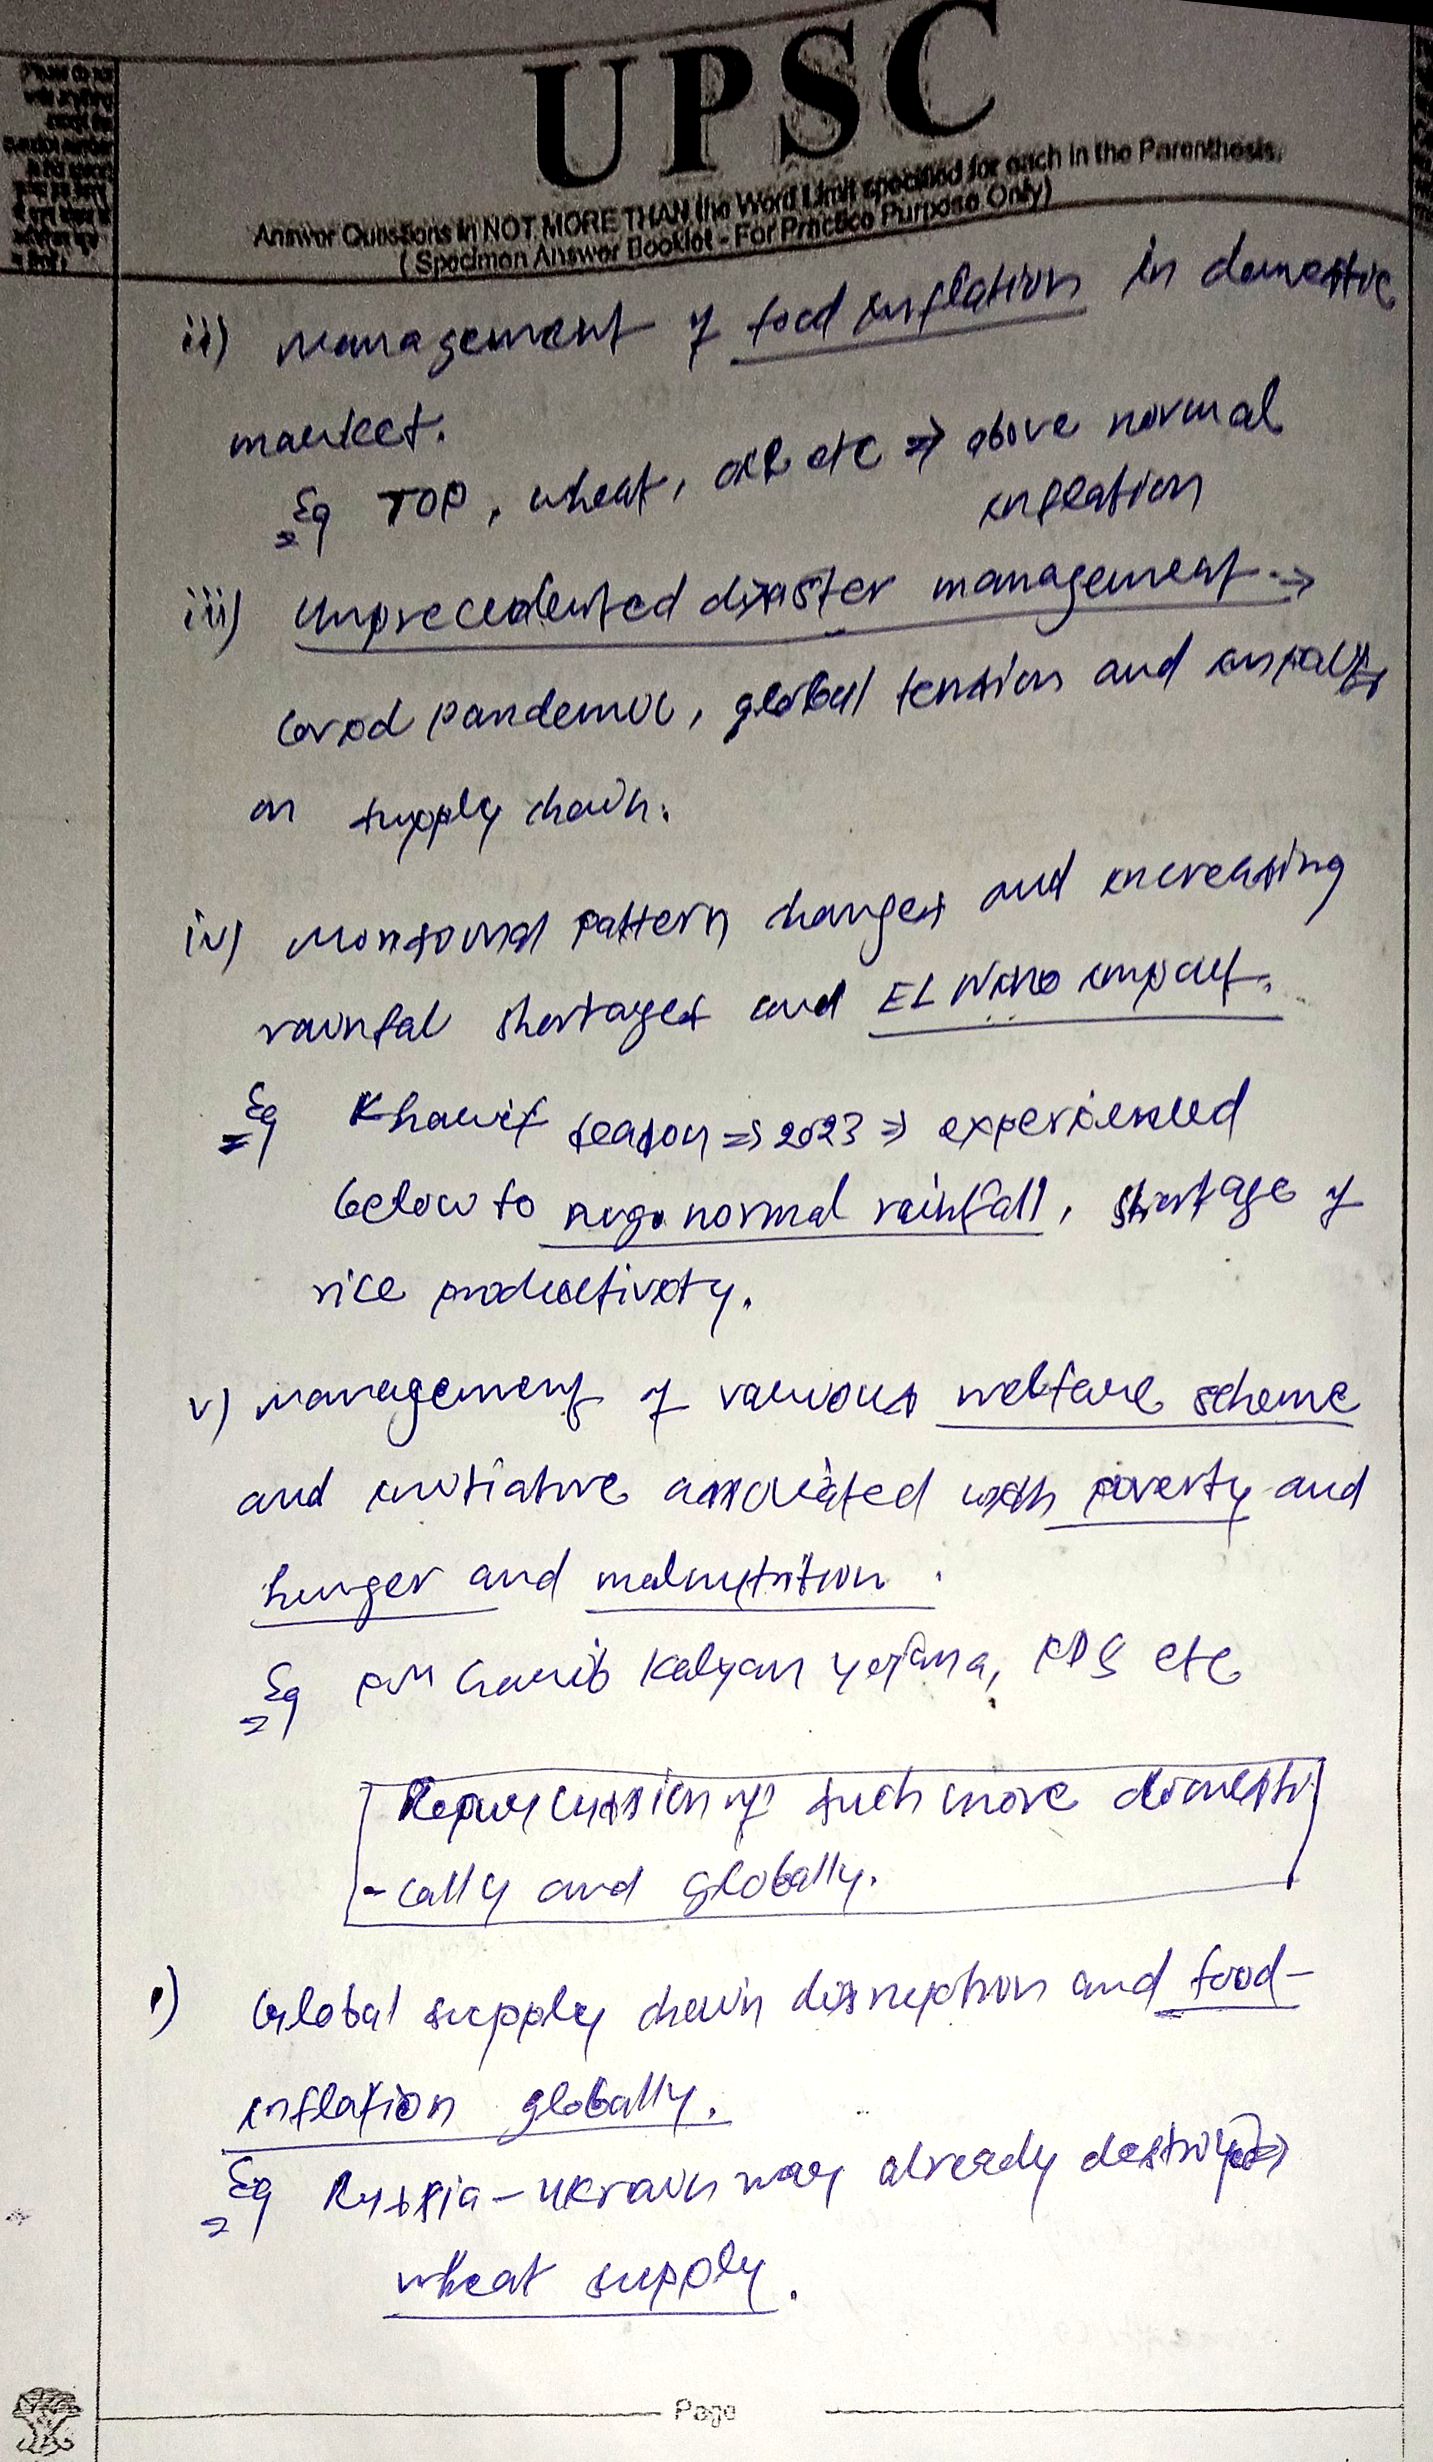 UPSC
Answer Questions in NOT MORE THAN the Word Limit specified for each in the Parenthesis.
( Specimen Answer Booklet - For Practice Purpose Only)
ii) Management of food inflation in domestic
market.
Eg TOP, wheat, oil etc ⇒ above normal
inflation
iii) Unprecedented disaster management →
Covid pandemic, global tension and impacts
on supply chain.
iv) Monsoonal pattern changes and increasing
rainfal shortages and EL Nino impact.
Eg Kharif season ⇒ 2023 ⇒ experienced
below to normal rainfall, shortage of
rice productivity.
v) management of various welfare scheme
and initiative associated with poverty and
hunger and malnutrition.
Eg PM Garib Kalyan Yojana, PDS etc
Repurcussion of such move domesti
-cally and globally.
i) Global supply chain disruption and food-
inflation globally.
Eg Russia-Ukrain war already destroyed
wheat supply.
Page